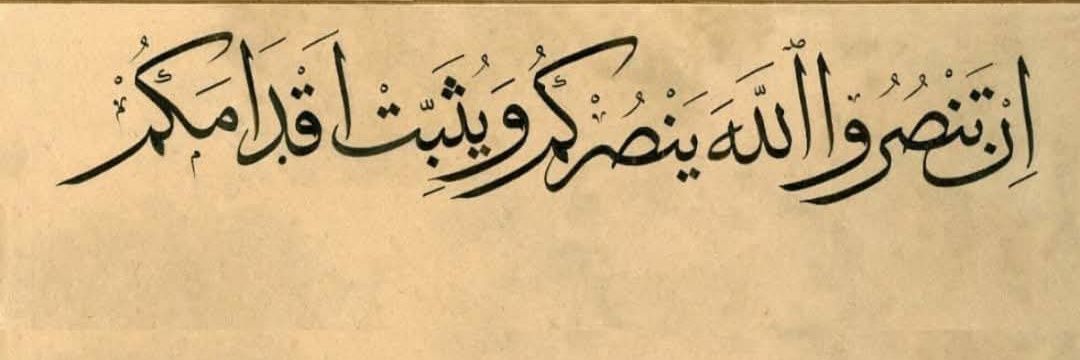 اِنْ تَنْصُرُوا اللّٰهَ يَنْصُرْكُمْ وَيُثَبِّتْ اَقْدَامَكُمْ